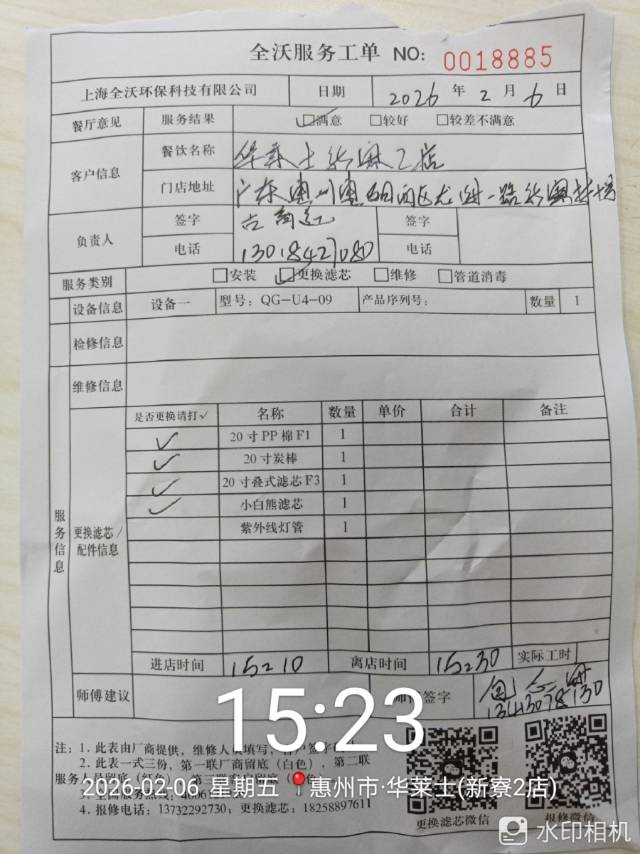 全沃服务工单 NO: 0018885
上海全沃环保科技有限公司 日期 2026 年 2 月 6 日
餐厅意见 服务结果 ☑满意 □较好 □较差不满意
客户信息 餐饮名称 华莱士新寮2店
门店地址 广东惠州惠阳
负责人 签字 签字
电话 13018421080 电话
服务类别 □安装 ☑更换滤芯 □维修 □管道消毒
设备信息 设备一 型号: QG-U4-09 产品序列号: 数量 1
检修信息
维修信息
服务信息 更换滤芯/配件信息
是否更换请打✓ 名称 数量 单价 合计 备注
✓ 20寸PP棉F1 1
✓ 20寸炭棒 1
✓ 20寸叠式滤芯F3 1
✓ 小白熊滤芯 1
紫外线灯管 1
进店时间 15:10 离店时间 15:30 实际工时
师傅建议 签字
15:23
注: 1. 此表由厂商提供, 维修人员填写,
2. 此表一式三份, 第一联厂商留底(白色), 第二联
服务人员留底(红色),
2026-02-06 星期五 惠州市·华莱士(新寮2店)
4. 报修电话: 13732292730; 更换滤芯: 18258897611
更换滤芯微信 报修微信
水印相机